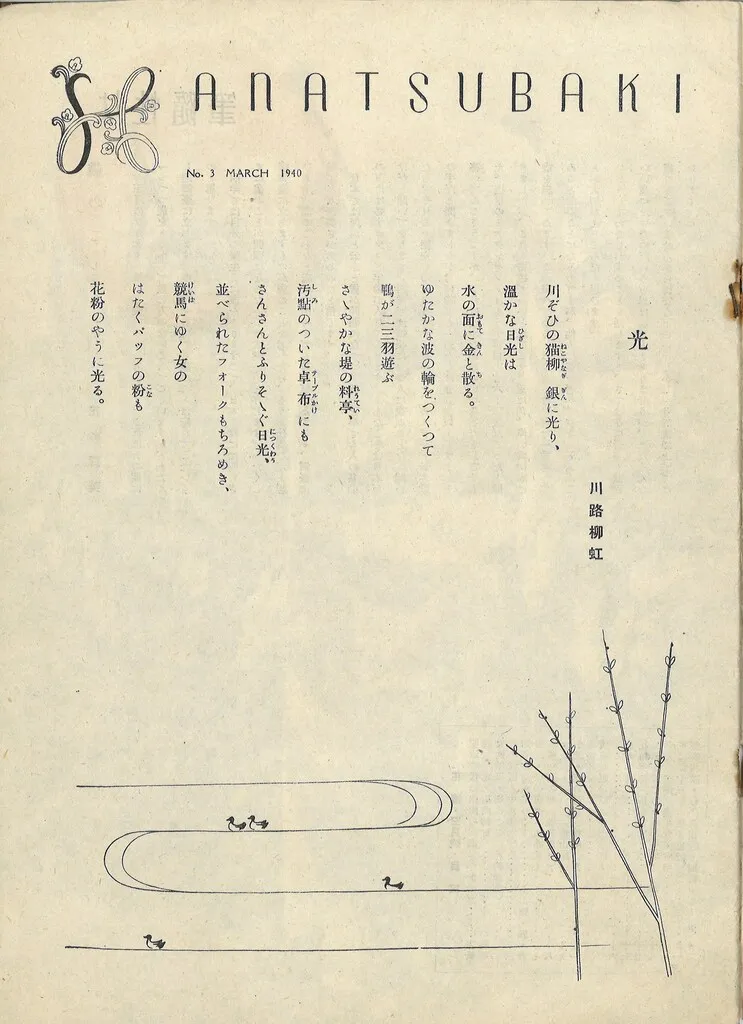 HANATSUBAKI
No. 3 MARCH 1940
光
川路柳虹
川ぞひの猫柳 銀に光り、
溫かな日光は
水の面に金と散る。
ゆたかな波の輪をつくつて
鴨が二三羽遊ぶ
さゝやかな堤の料亭、
汚點のついた卓布にも
さんさんとふりそゝぐ日光、
並べられたフォークもちろめき、
競馬にゆく女の
はたくパッフの粉も
花粉のやうに光る。